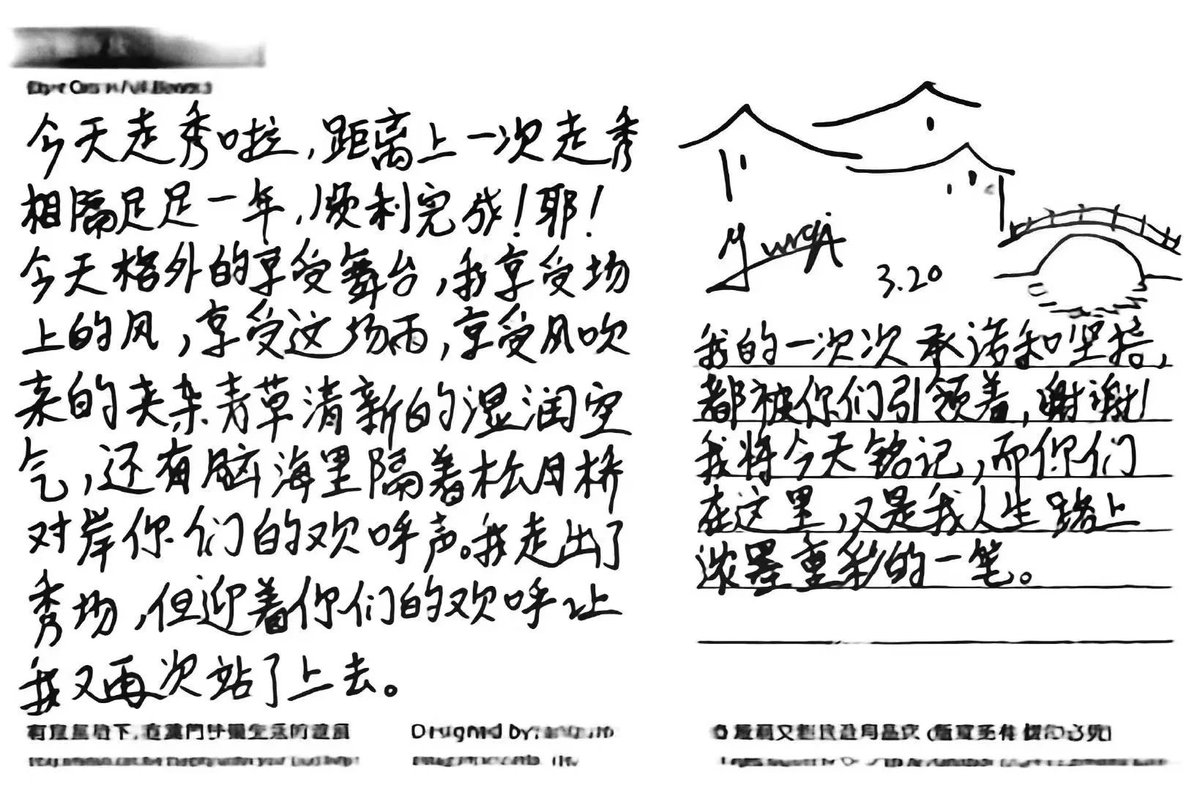 今天走秀啦，距离上一次走秀
相隔足足一年，顺利完成！耶！
今天格外的享受舞台，我享受场
上的风，享受这场雨，享受风吹
来的夹杂青草清新的湿润空
气，还有脑海里隔着松月桥
对岸你们的欢呼声。我走出了
秀场，但迎着你们的欢呼让
我又再次站了上去。
3.20
我的一次次承诺和坚持，
都被你们引领着，谢谢！
我将今天铭记，而你们
在这里，又是我人生路上
浓墨重彩的一笔。
Designed by